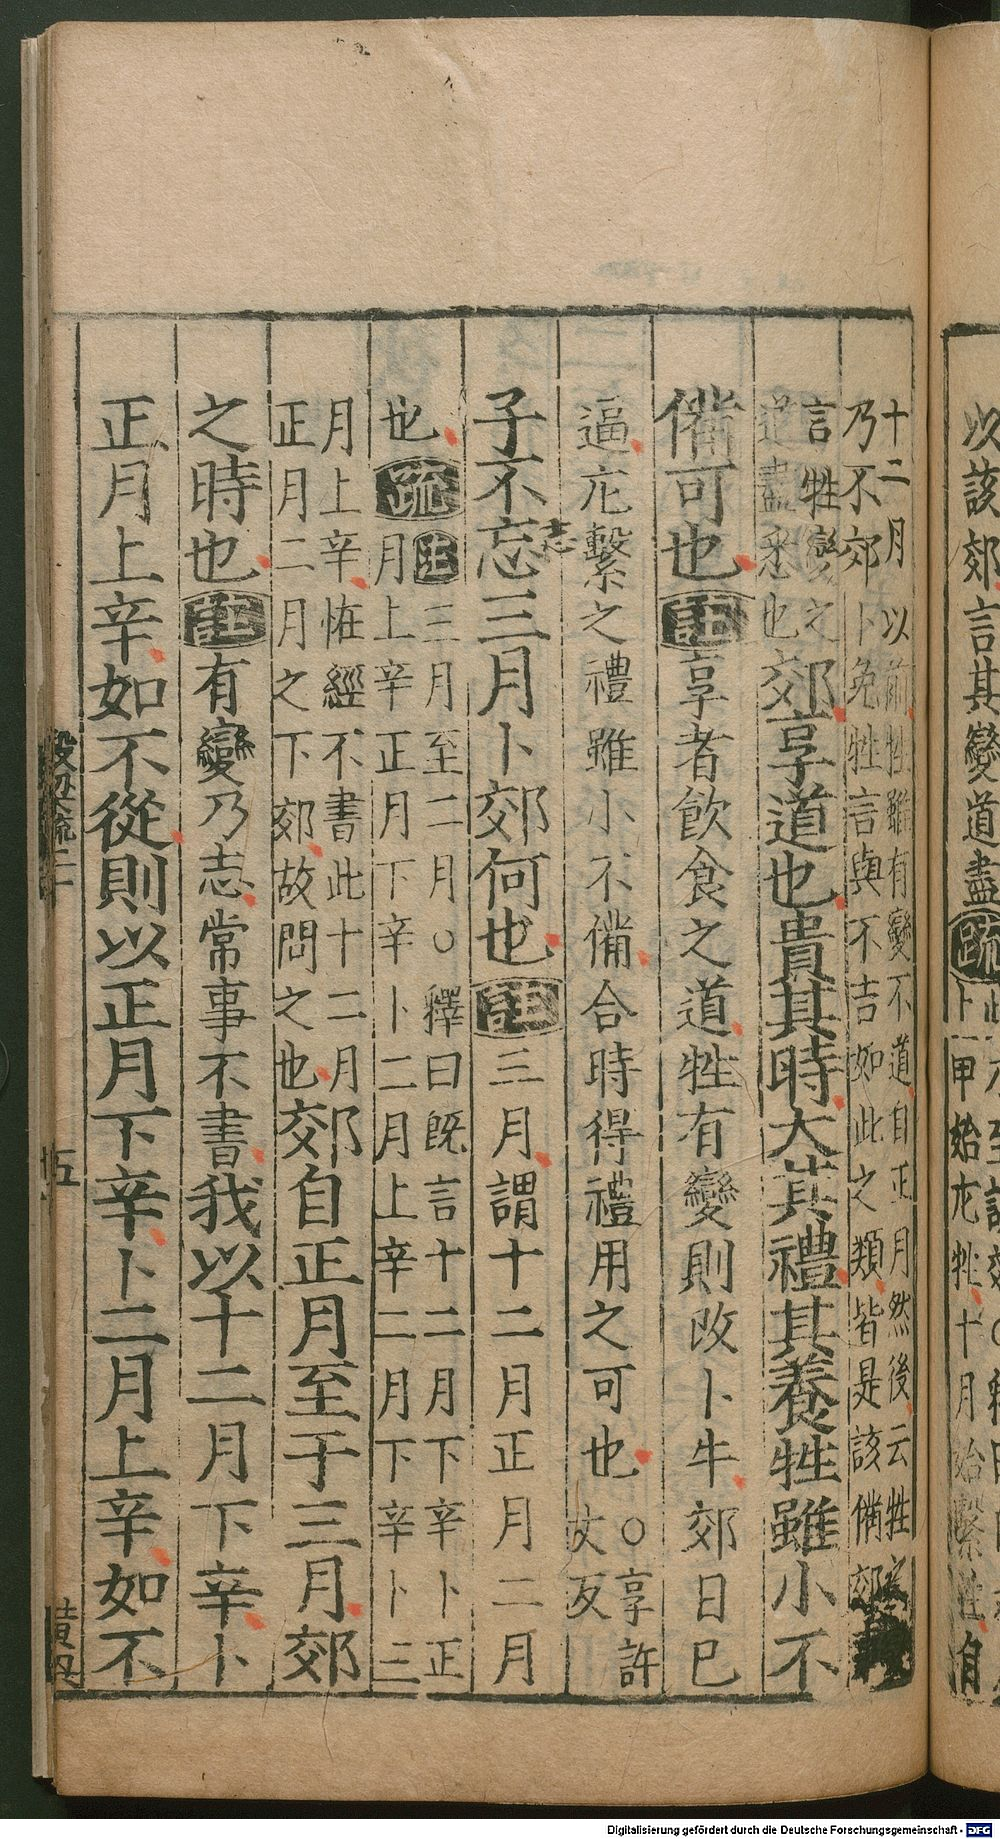 以該郊言其變道盡疏
卜甲始庀牲十月始繫牲自
十二月以前牲雖有變不道自正月然後云牲
乃不郊卜免牲言與不吉如此之類皆是該備郊
言牲變之
道盡悉也
郊享道也貴其時大其禮其養牲雖小不
備可也註享者飲食之道牲有變則改卜牛郊日已
逼庀繫之禮雖小不備合時得禮用之可也○享許
丈反
子不忘三月卜郊何也註三月謂十二月正月二月
志
也疏註三月至二月○釋曰既言十二月下辛卜正
月上辛正月下辛卜二月上辛二月下辛卜三
月上辛恠經不書此十二月
正月二月之下郊故問之也
郊自正月至于三月郊
之時也註有變乃志常事不書我以十二月下辛卜
正月上辛如不從則以正月下辛卜二月上辛如不
五
Digitalisierung gefördert durch die Deutsche Forschungsgemeinschaft - DFG